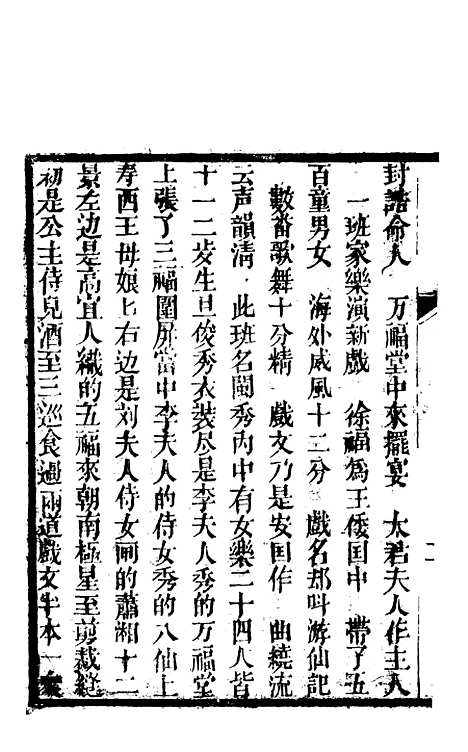 封誥命人　万福堂中來擺宴　太君夫人作主人
一班家樂演新戲　徐福爲王倭国中　帶了五
百童男女　海外威風十二分　戲名却叫游仙記
數畨歌舞十分精　戲文乃是安国作　曲繞流
云声韻清　此班名閨秀内中有女樂二十四人皆
十一二岁生旦俊秀衣裝尽是李夫人秀的万福堂
上張了三福圍屏當中李夫人的侍女秀的八仙上
寿西王母娘匕右边是刘夫人侍女画的蕭湘十二
景左边是高宜人織的五福來朝南極星至剪裁縫
初是公主侍兒酒至三巡食過兩道戲文半本一衆
二